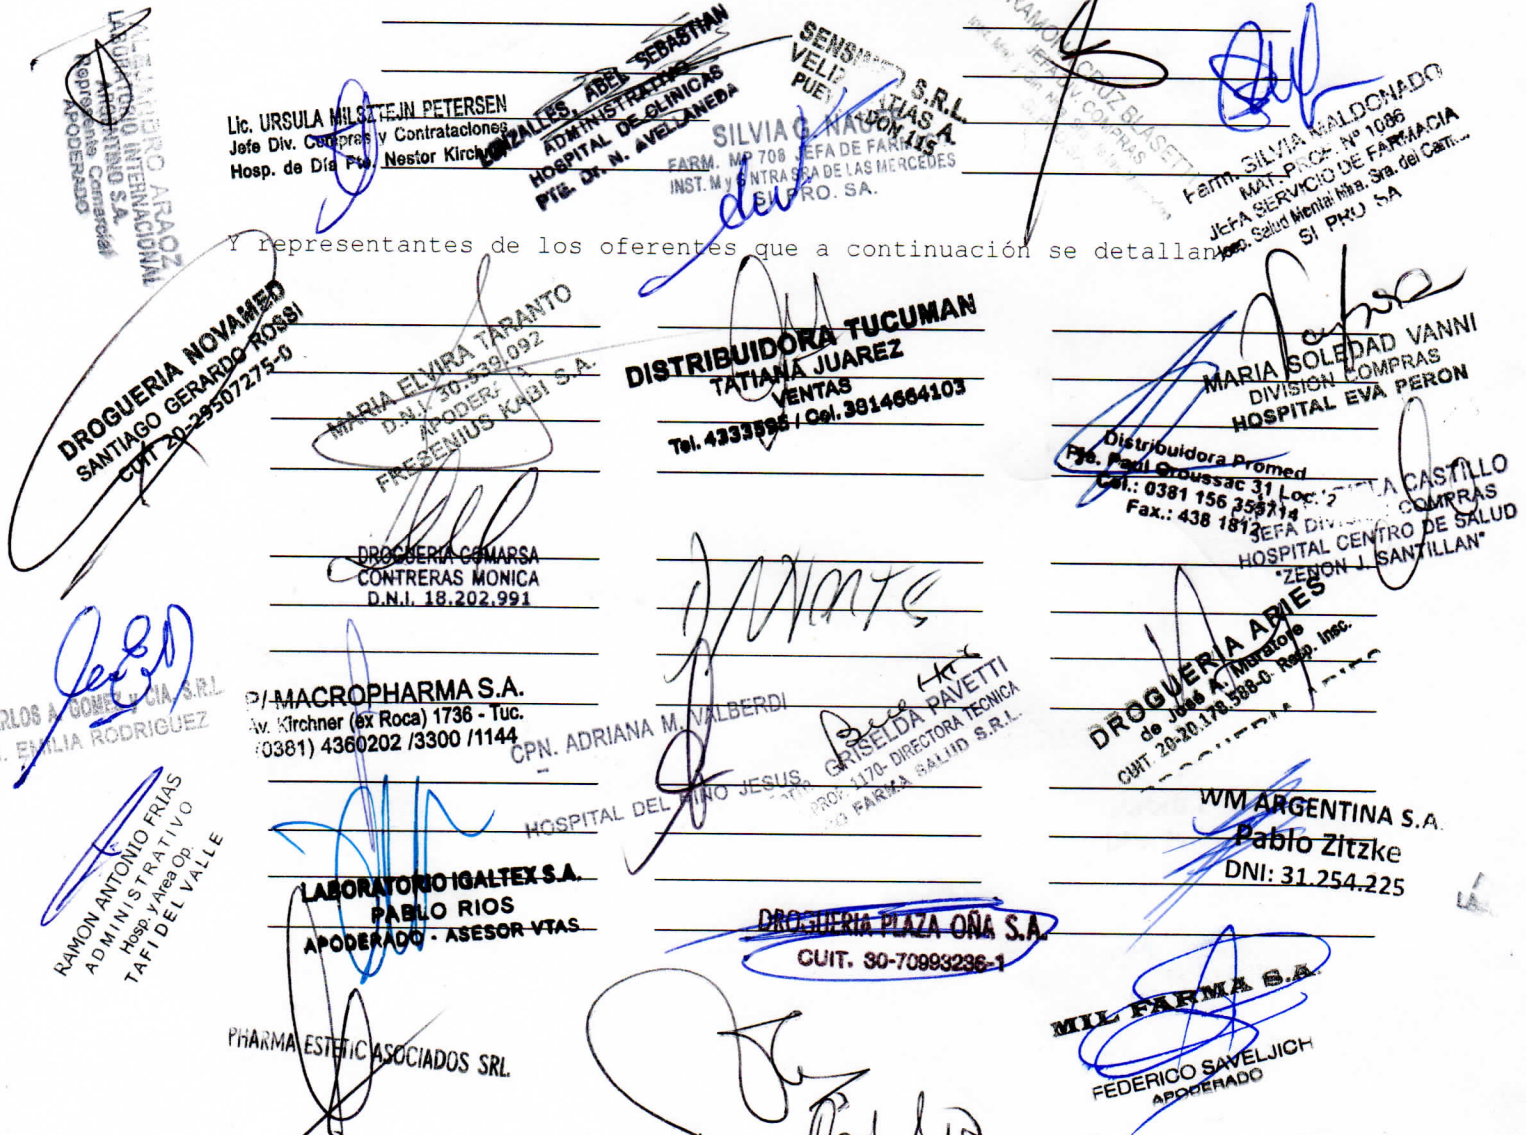 ALEJANDRO ARAOZ
LABORATORIO INTERNACIONAL
ARGENTINO S.A.
Representante Comercial
APODERADO
Lic. URSULA MILSZTEJN PETERSEN
Jefe Div. Compras y Contrataciones
Hosp. de Día Pte. Nestor Kirchner
GONZALLES, ABEL SEBASTIAN
ADMINISTRATIVO
HOSPITAL DE CLINICAS
PTE. Dr. N. AVELLANEDA
SENSIMED S.R.L.
SILVIA G.
FARM. MP 708 JEFA DE FARM
INST. M y
SRA DE LAS MERCEDES
SI.PRO.SA.
RAMON CRUZ BLASETTI
JEFA DIV. COMPRAS
Farm. SILVIA MALDONADO
MAT. PROF. Nº 1086
JEFA SERVICIO DE FARMACIA
Hosp. Salud Mental Ntra. Sra. del Carm...
SI PRO SA
Y representantes de los oferentes que a continuación se detallan
DROGUERIA NOVAMED
SANTIAGO GERARDO ROSSI
CUIT 20-29507275-0
MARIA ELVIRA TARANTO
D.N.I. 30.539.092
APODERADA
FRESENIUS KABI S.A.
DISTRIBUIDORA TUCUMAN
TATIANA JUAREZ
VENTAS
Tel. 4333595 / Cel. 3814664103
MARIA SOLEDAD VANNI
DIVISION COMPRAS
HOSPITAL EVA PERON
Distribuidora Promed
Pje. Paul Groussac 31 Loc. 2
Cel.: 0381 156 355714
Fax.: 438 1812
CASTILLO
JEFA DIVISION COMPRAS
HOSPITAL CENTRO DE SALUD
"ZENON J. SANTILLAN"
DROGUERIA COMARSA
CONTRERAS MONICA
D.N.I. 18.202.991
CARLOS A. GOMEZ y CIA. S.R.L.
EMILIA RODRIGUEZ
P/ MACROPHARMA S.A.
Av. Kirchner (ex Roca) 1736 - Tuc.
(0381) 4360202 /3300 /1144
CPN. ADRIANA M. VALBERDI
HOSPITAL DEL NIÑO JESUS
GRISELDA PAVETTI
PROF. 1170- DIRECTORA TECNICA
FARMA SALUD S.R.L.
DROGUERIA ARIES
de José A. Muratore
CUIT. 20-20.178.588-0- Resp. Insc.
RAMON ANTONIO FRIAS
ADMINISTRATIVO
Hosp. y Area Op.
TAFI DEL VALLE
LABORATORIO IGALTEX S.A.
PABLO RIOS
APODERADO - ASESOR VTAS
WM ARGENTINA S.A.
Pablo Zitzke
DNI: 31.254.225
DROGUERIA PLAZA OÑA S.A.
CUIT. 30-70993236-1
PHARMA ESTETIC ASOCIADOS SRL.
MIL FARMA S.A.
FEDERICO SAVELJICH
APODERADO